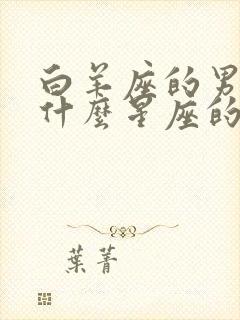 白羊座的男
什麼星座的
葉菁